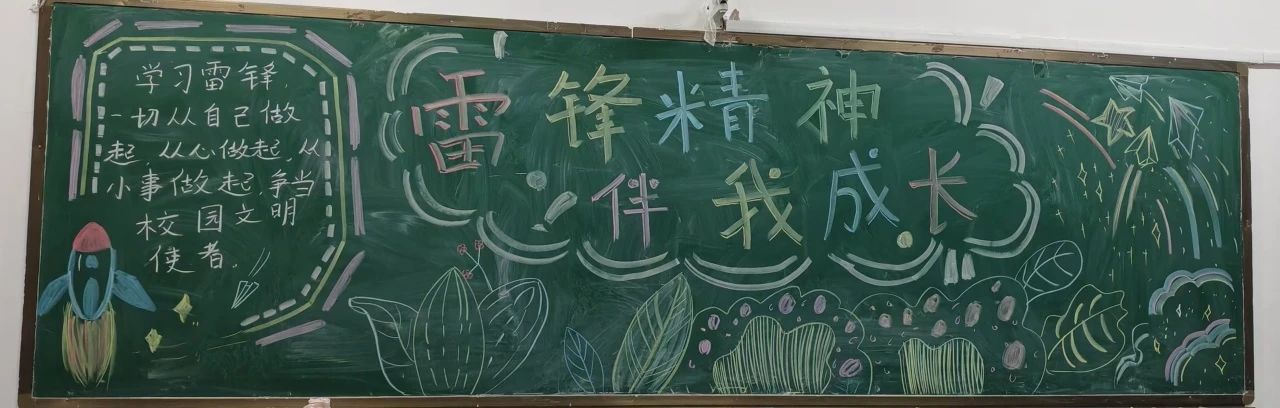 学习雷锋,
一切从自己做
起,从心做起,从
小事做起,争当
校园文明
使者.
雷锋精神
伴我成长